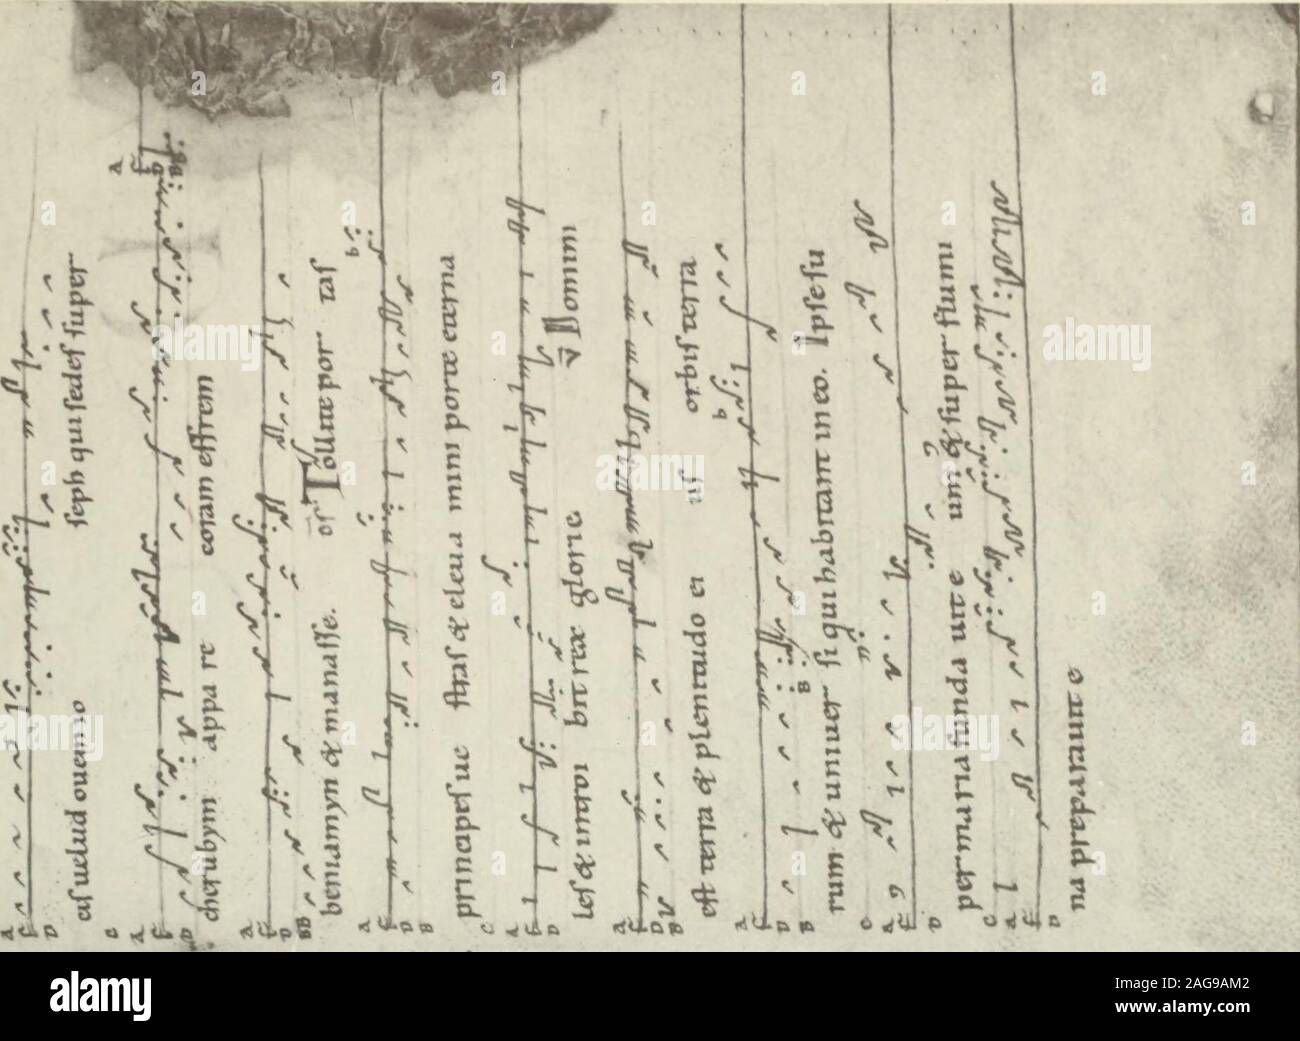 cis uelud ouem io seph qui sedes super
cherubym appa re coram effrem
beniamyn & manasse. of Tollite por tas
principes ue stras & eleua mini portæ æterna
les & introi bit rex gloriæ v Domini
est terra & plenitudo ei us orbis terra
rum & uniuer si qui habitant in eo. Ipse su
per maria funda uit e um & super flumi
na preparauit e
alamy
Image ID: 2AG9AM2
www.alamy.com